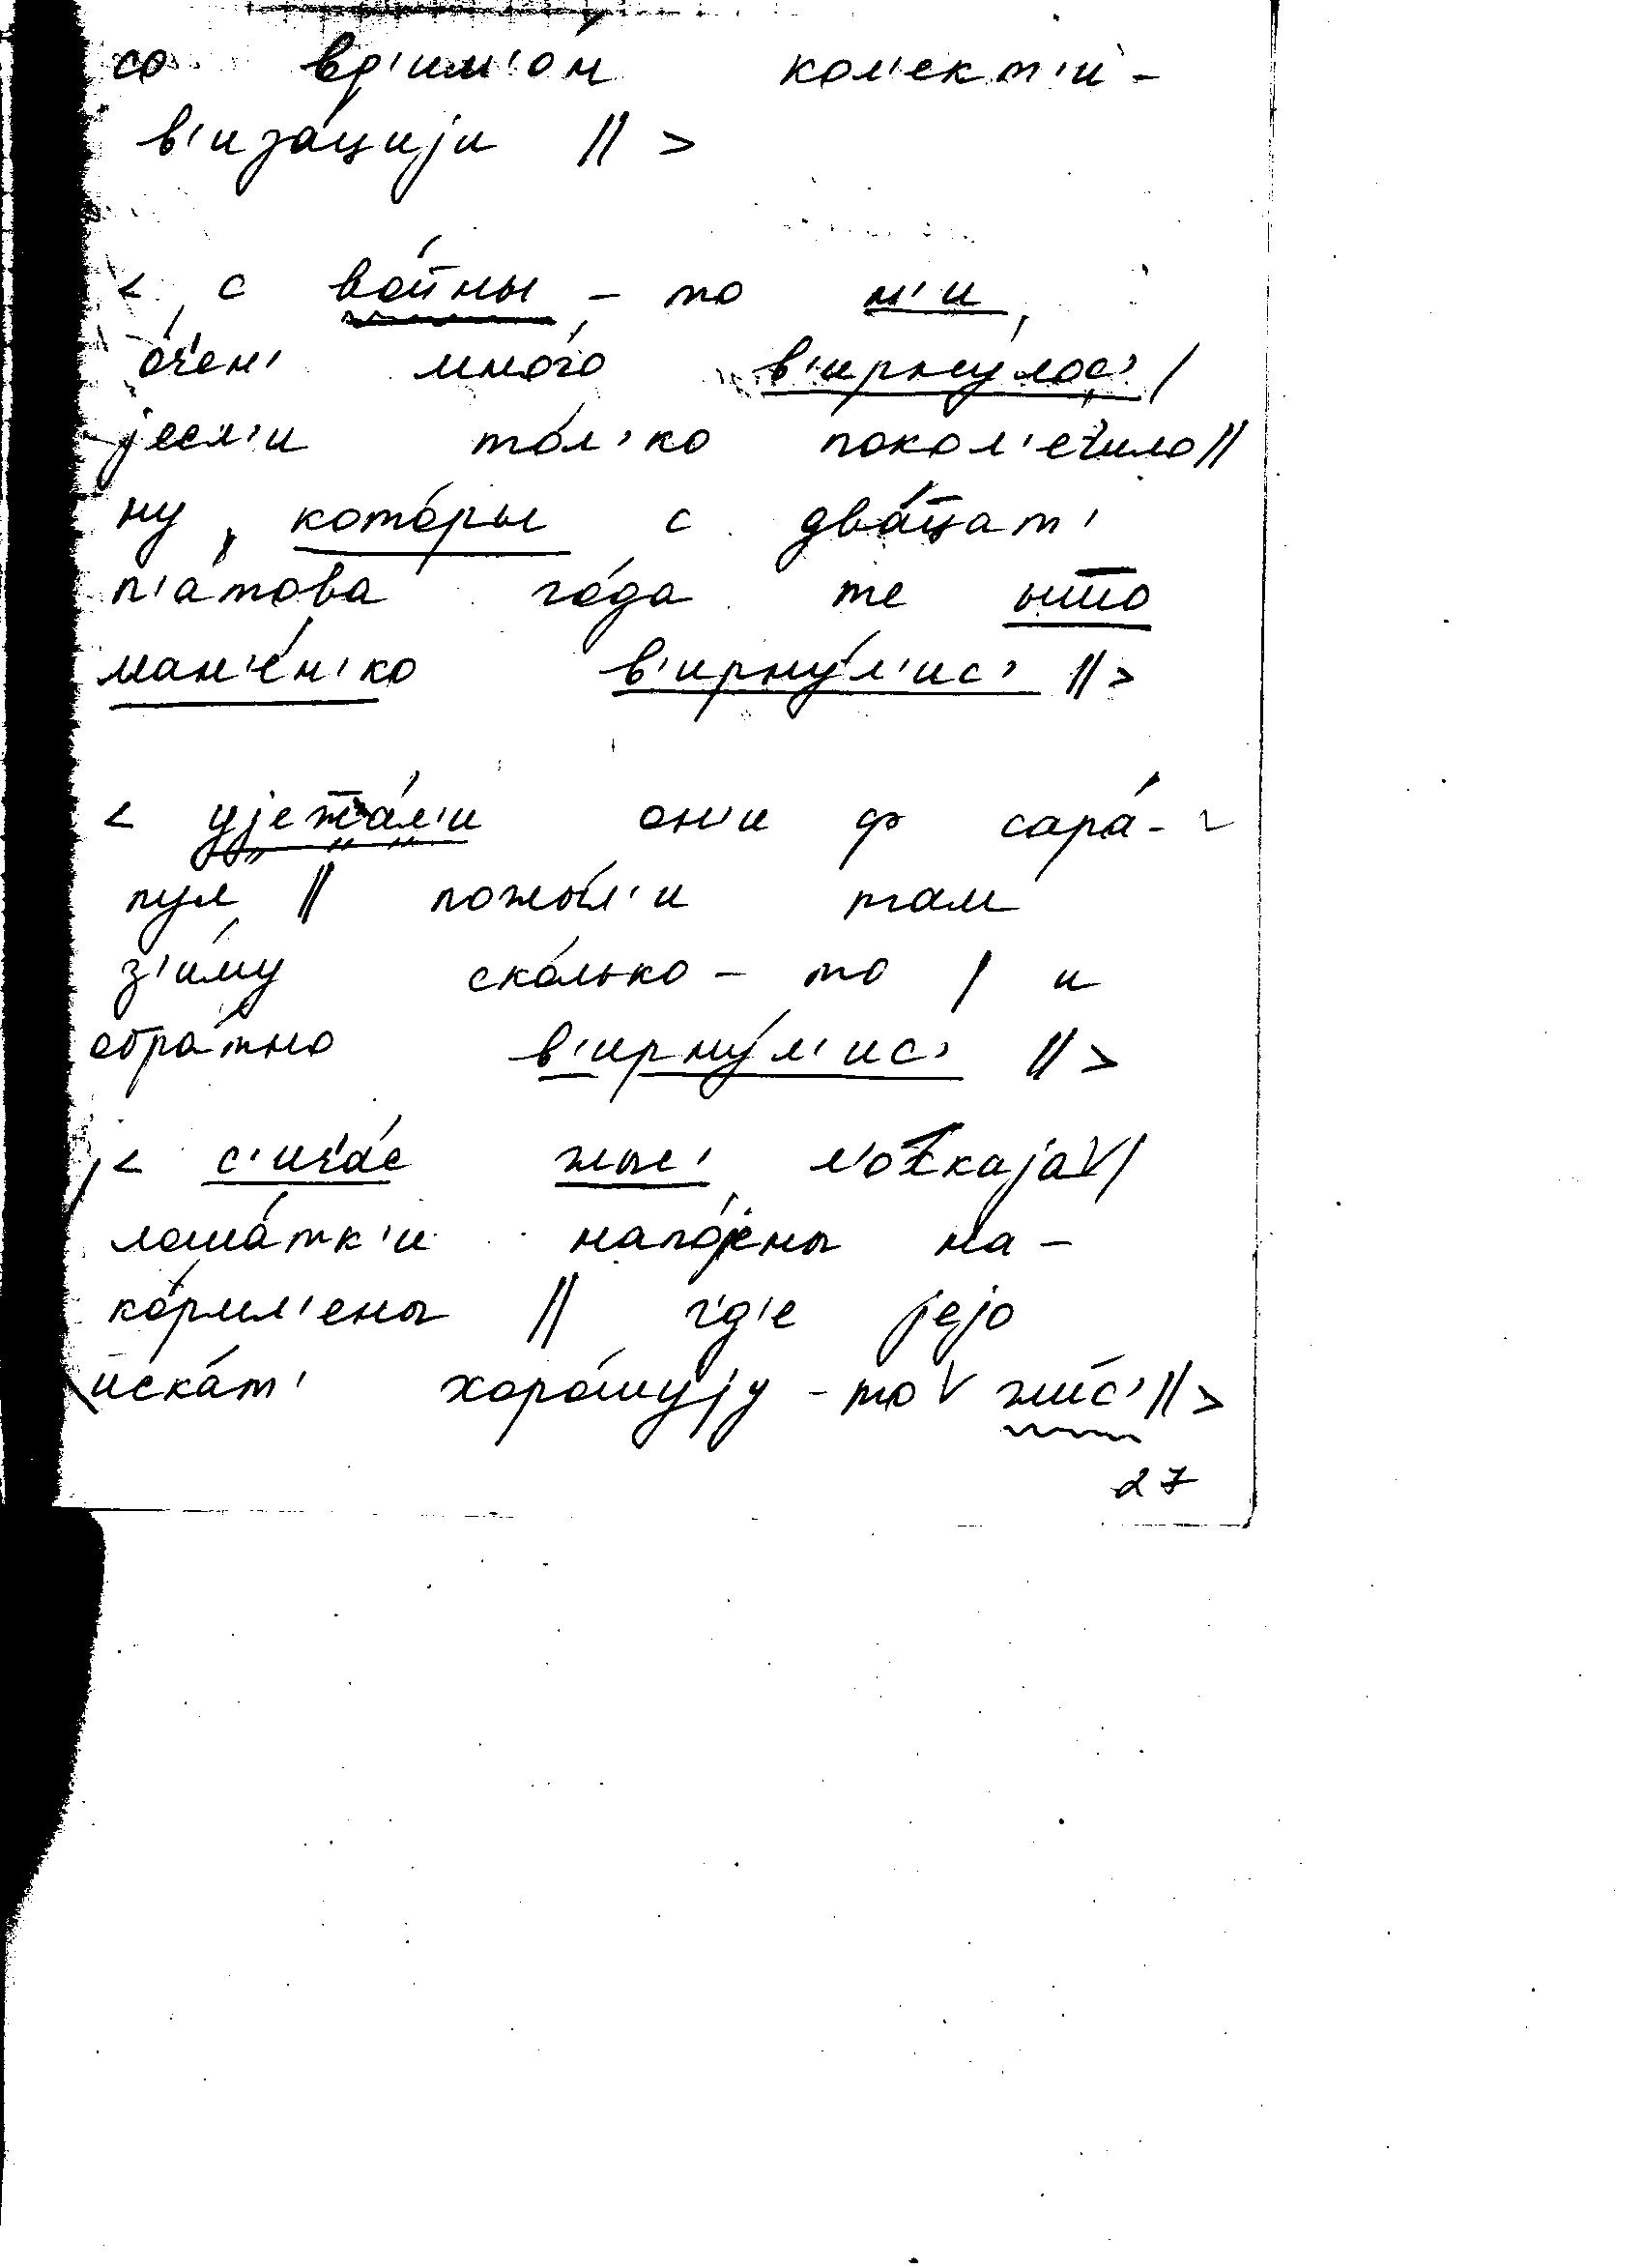 со вр'им'о́н кол'ект'и-
в'иза́цији || >
< с во́йны - то н'и
о́ч'ен' мно́го в'ирну́лос' /
јесл'и то́л'ко покол'е́ч'ило ||
ну, кото́ры с два́цат'
п'а́това го́да те што
мал'е́н'ко в'ирну́л'ис' || >
< ујежа́л'и он'и ф сара́-
пул || пожы́л'и там
з'и́му ско́лько - то / и
обра́тно в'ирну́л'ис' || >
< с'ич'а́с жыс'
лоша́тк'и напо́јены на-
ко́рмл'ены || г'д'е јејо
иска́т' хоро́шују - то жис' || >
27